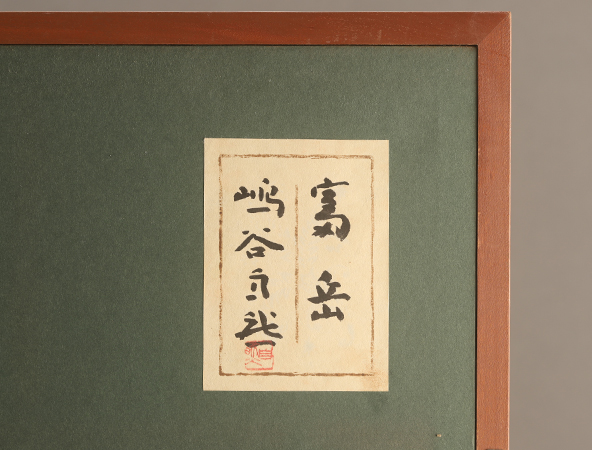 富岳
嶋谷自然